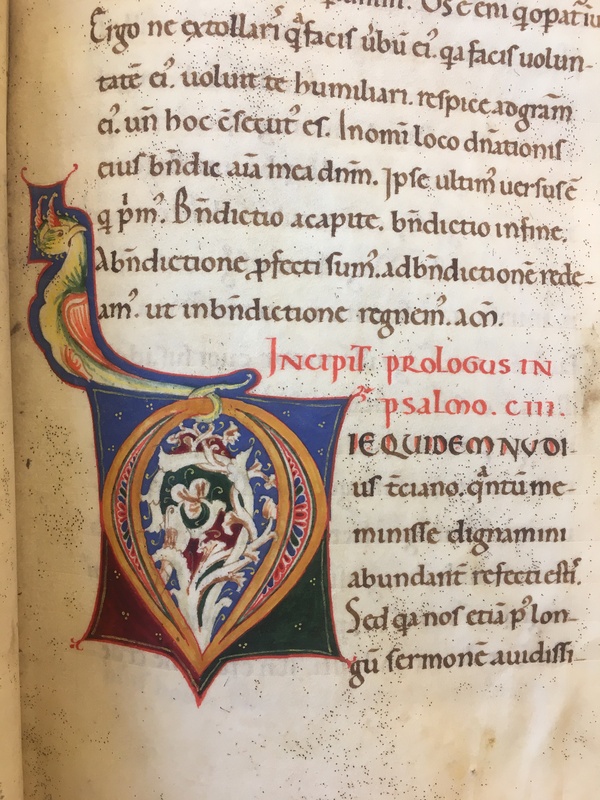 Ergo ne extollaris q̄ facis v̄bū ei᷒. qa facis uolun-
tatē ei᷒. uoluit te humiliari. respice ad grām̄
ei᷒. uñ hoc c̄secut᷒ es. In om̄i loco dn̄ationis
eius bn̄dic aīa mea dnm̄. Ipse ultim᷒ uersus ē
q p̄m᷒. Bn̄dictio a capite. bn̄dictio in fine.
A bn̄dictione ꝓfecti sum᷒. ad bn̄dictionē rede-
am᷒. ut in bn̄dictione regnem᷒. am̄.
INCIPIT PROLOGUS IN
psalmo. CIII.
DIE QUIDEM NUDI
us t̄ciano. qntū me-
minisse dignamini
abundant᷒ refecti estis.
Sed qa nos etiā p᷒ lon-
gū sermonē auidissi-